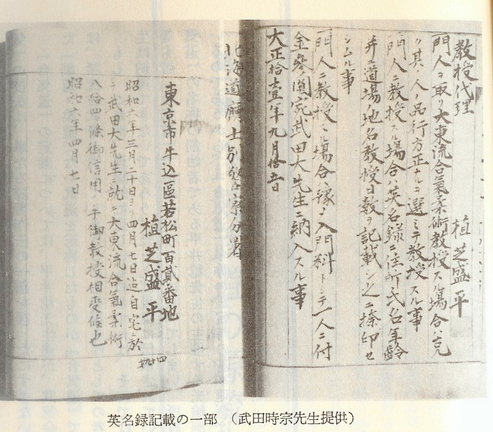 教授代理
植芝盛平
門人ヲ取リ大東流合氣柔術教授スル場合ハ
其ノ人ノ品行方正ナル
選ミ教授スル事
門人ニ教授スル場合ハ英名録ニ住所氏名年齢
並ニ道場地名教授日数ヲ記載シ之ニ捺印セ
シムル事
一門人ニ教授スル場合ハ
入門料トシテ一人ニ付
金参圓宛武田大先生ニ納入スル事
大正拾壹年九月拾五日
北海道廳
東京市牛込區若松町百貳番地
植芝盛平
昭和六年三月二十日ヨリ四月七日迠自宅ニ於
テ武田大先生ニ就キ大東流合氣柔術
八拾四ヶ條御信用ノ手御教授相受候也
昭和六年四月七日
英名録記載の一部 (武田時宗先生提供)